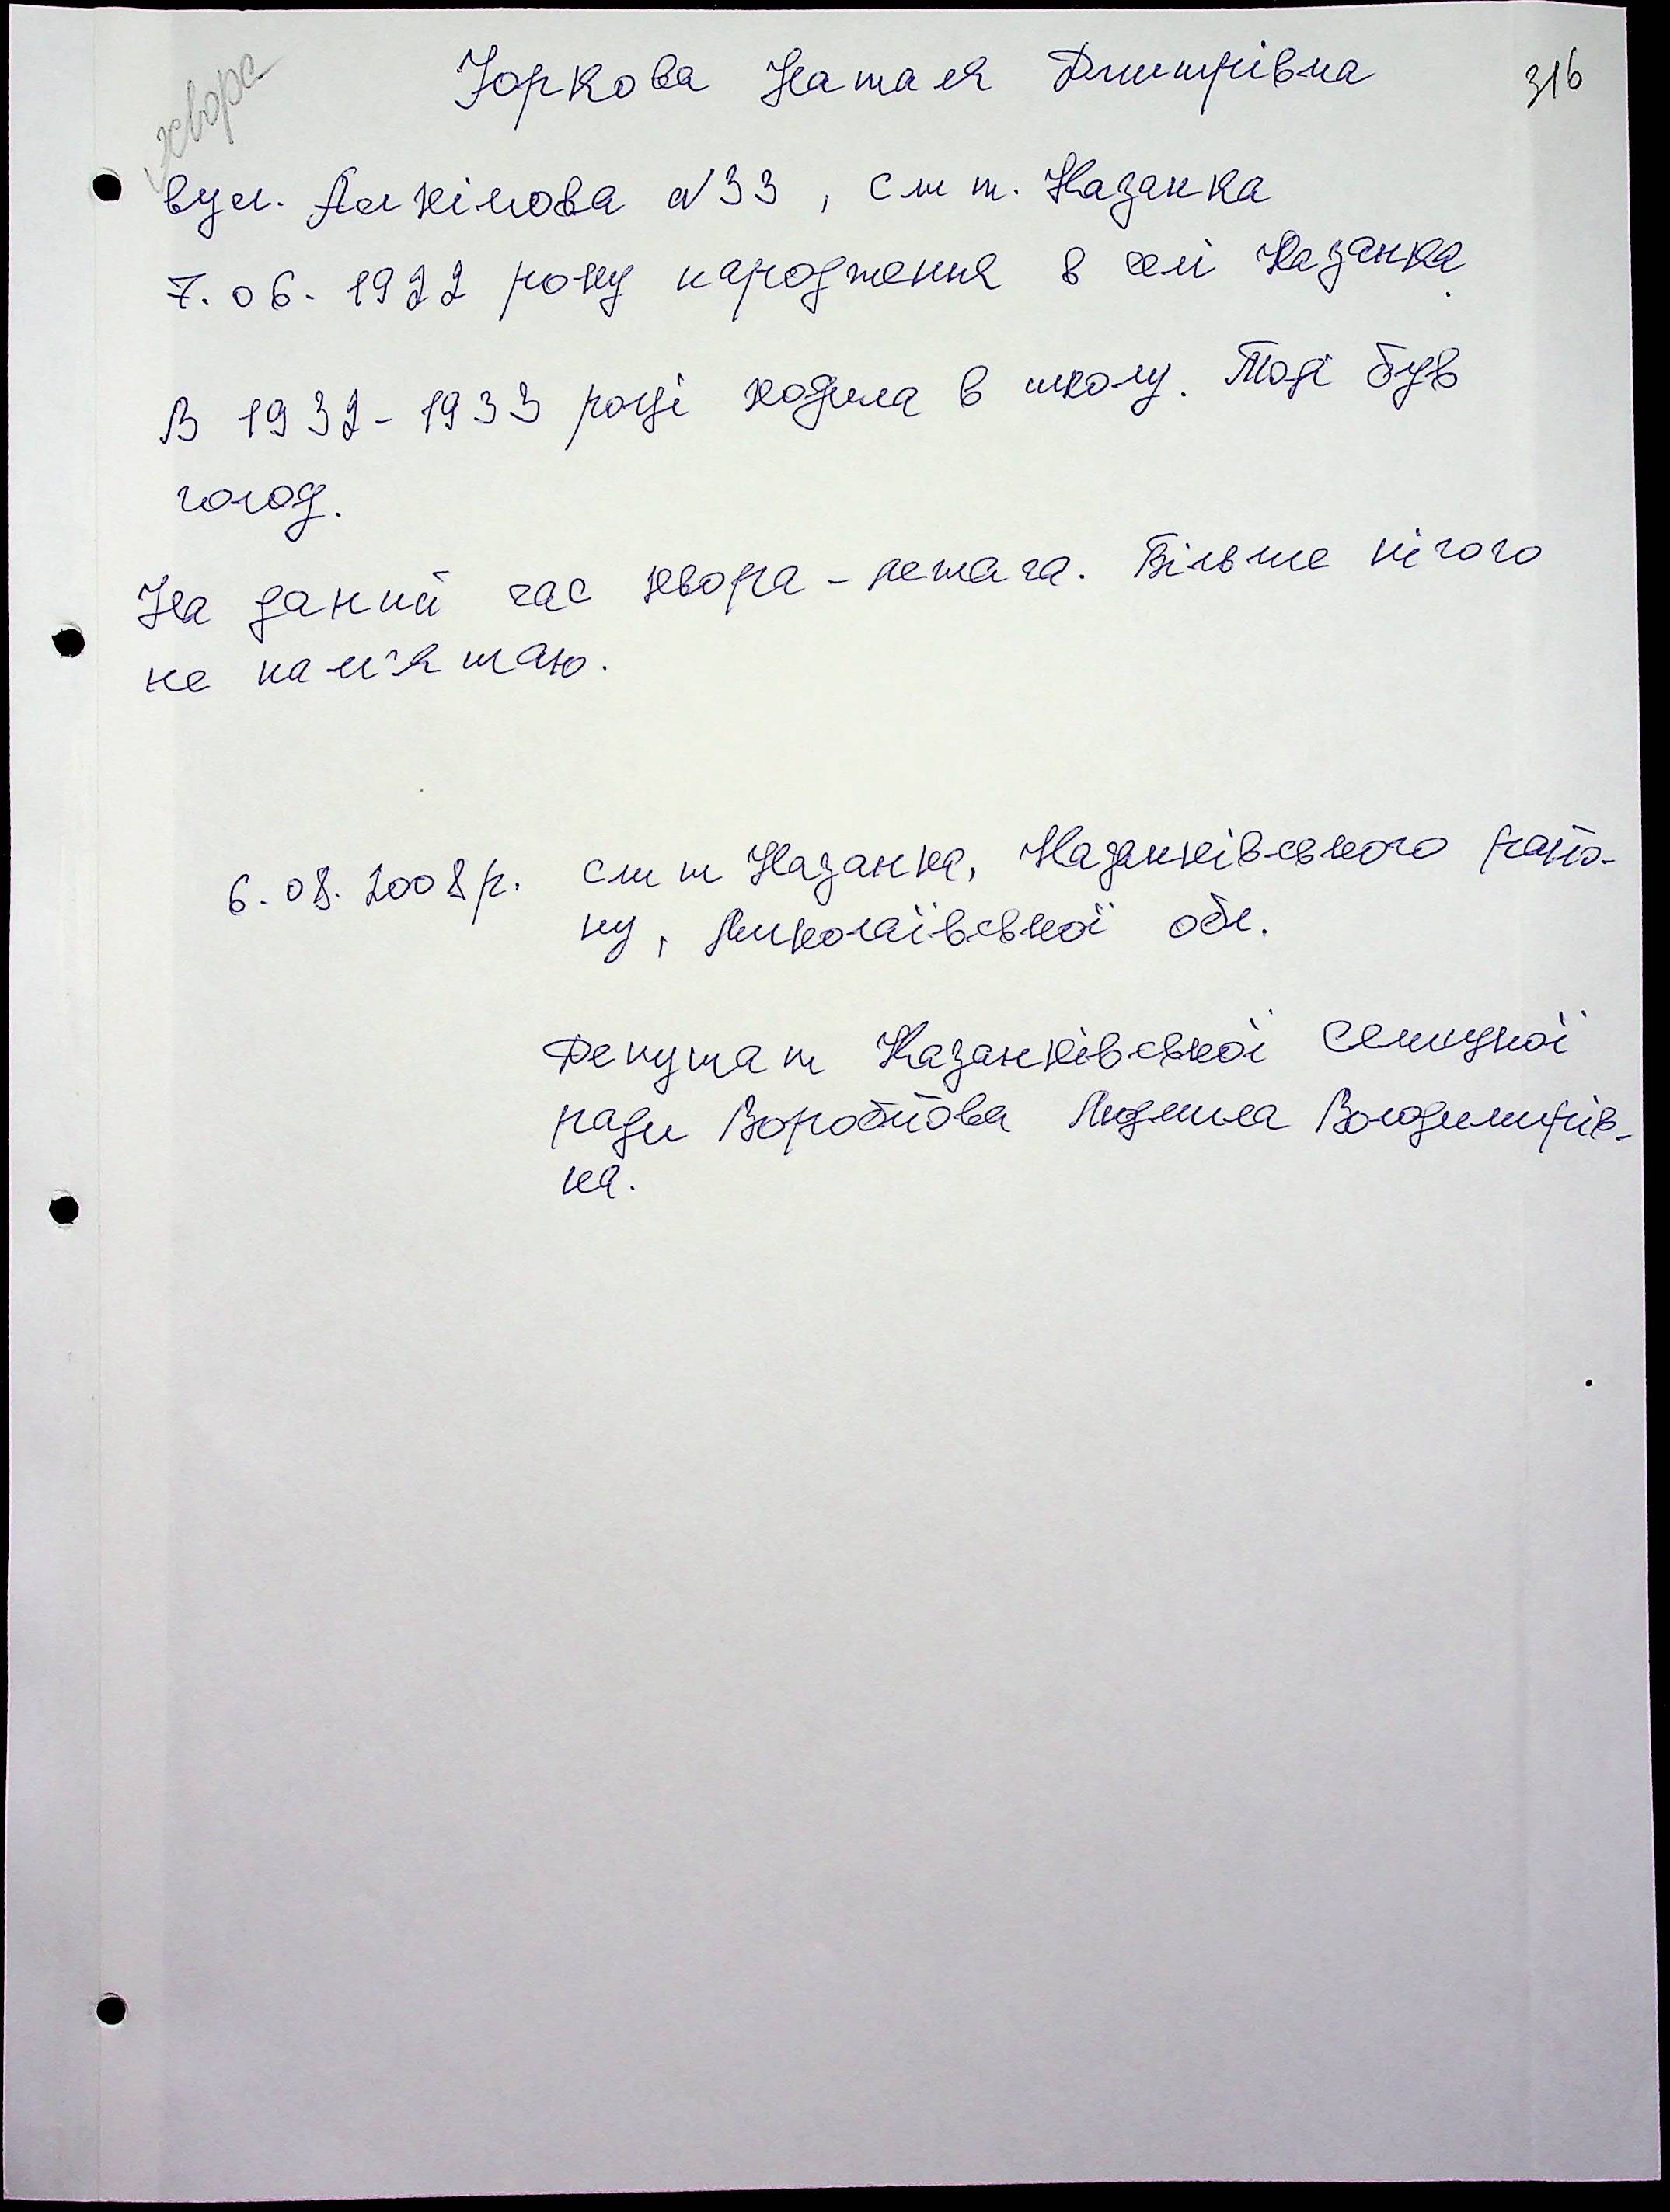 хвора
Юркова Наталя Дмитрівна
316
вул. Алхімова №33, смт. Казанка
7.06.1922 року народження в селі Казанка.
В 1932-1933 році ходила в школу. Тоді був
голод.
На даний час хвора - лежача. Більше нічого
не пам'ятаю.
6.08.2008р. смт Казанка, Казанківського райо-
ну, Миколаївської обл.
Депутат Казанківської селищної
ради Воробйова Людмила Володимирів-
на.